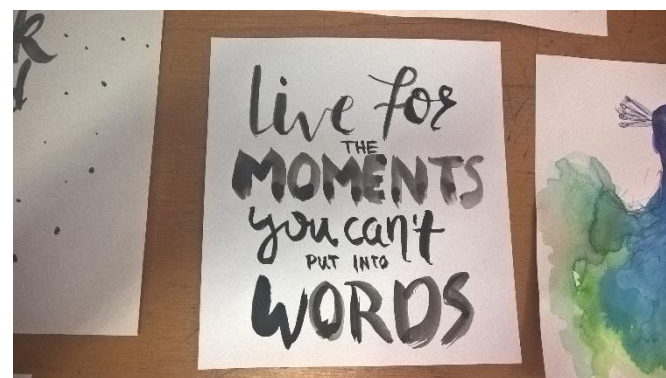 live for
THE
MOMENTS
you can't
PUT INTO
WORDS